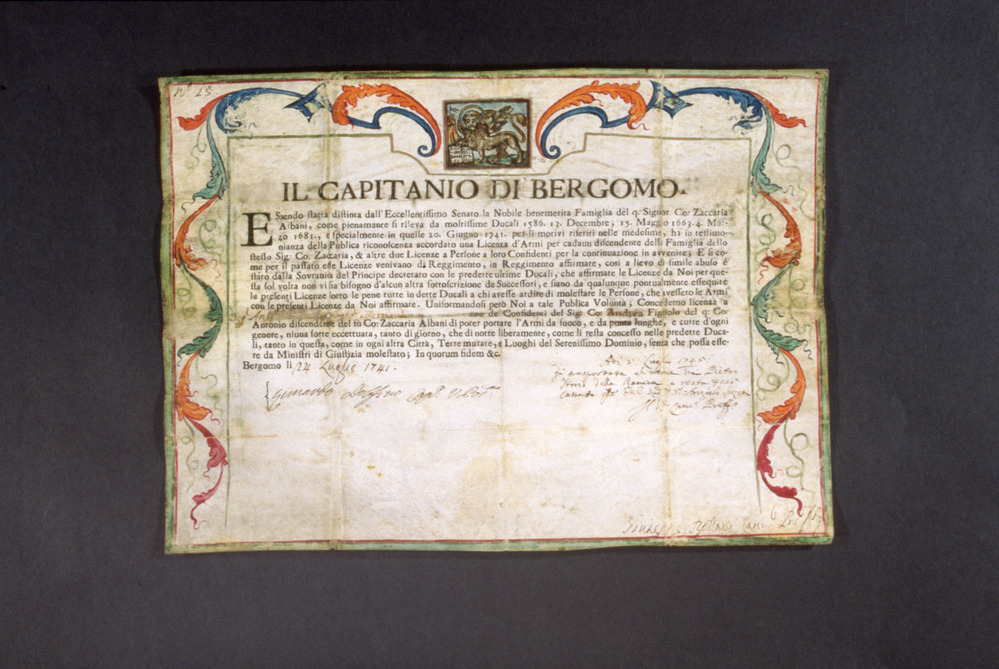 N.º 25
IL CAPITANIO DI BERGOMO.
ESsendo stata distinta dall'Eccellentissimo Senato la Nobile benemerita Famiglia del q. Signor Co: Zaccaria
Albani, come pienamente si rileva da moltissime Ducali 1586. 13. Decembre; 15. Maggo 1663. 4. Mar-
zo 1681., e specialmente in quelle 20. Giugno 1741. per li motivi riferiti nelle medesime, hà in testimo-
nianza della Publica riconoscenza accordato una Licenza d'Armi per cadaun discendente dell Famiglia dello
stesso Sig: Co: Zaccaria, & altre due Licenze a Persone a loro Confidenti per la continuazione in avvenire; E sì co-
me per il passato esse Licenze venivano da Reggimento, in Reggimento affirmate, così a lievo di simile abuso è
stato dalla Sovranità del Principe decretato con le predette ultime Ducali, che affirmate le Licenze da Noi per que-
sta sol volta non vi sia bisogno d'alcun altra sottoscrizione de Successori, e siano da qualunque pontualmente essequite
le presenti Licenze sotto le pene tutte in dette Ducali a chi avesse ardire di molestare le Persone, che avessero le Armi
con le presenti Licenze da Noi affirmate. Uniformandosi però Noi a tale Publica Volontà; Concedemo licenza a
uno de Confidenti del Sig: Co: Andrea Figliolo del q: Co:
Antonio discendente del fù Co: Zaccaria Albani di poter portare l'Armi da fuoco, e da ponta lunghe, e curte d'ogni
genere, niuna sorte eccettuata, tanto di giorno, che di notte liberamente, come li resta concesso nelle predette Duca-
li, tanto in questa, come in ogni altra Città, Terre murate, e Luoghi del Serenissimo Dominio, senza che possa esse-
re da Ministri di Giustizia molestato; In quorum fidem &c.
Bergomo li 24. Luglio 1741.